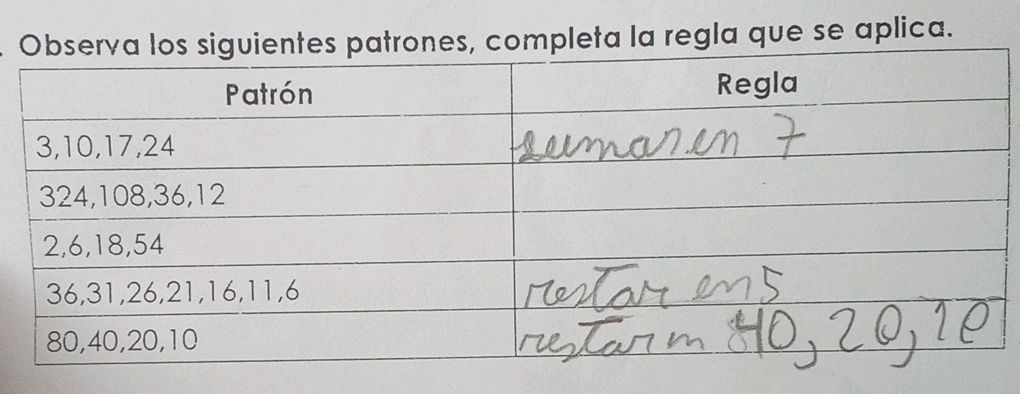 . Observa los siguientes patrones, completa la regla que se aplica.
Patrón Regla
3,10,17,24 sumar en 7
324,108,36,12
2,6,18,54
36,31,26,21,16,11,6 restar en 5
80,40,20,10 restar m 40, 20, 10